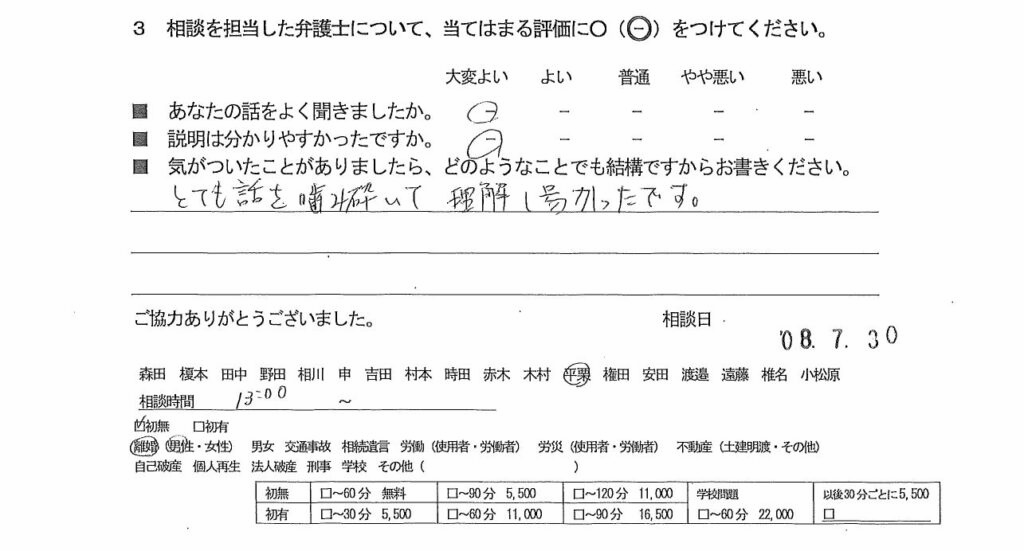 3 相談を担当した弁護士について、当てはまる評価に○（㊀）をつけてください。
大変よい よい 普通 やや悪い 悪い
■ あなたの話をよく聞きましたか。 － － － － －
■ 説明は分かりやすかったですか。 － － － － －
■ 気がついたことがありましたら、どのようなことでも結構ですからお書きください。
とても話を噛み砕いて 理解し易かったです。
ご協力ありがとうございました。 相談日 '08. 7. 30
森田 榎本 田中 野田 相川 申 吉田 村本 時田 赤木 木村 平栗 権田 安田 渡邉 遠藤 椎名 小松原
相談時間 13:00 ～
☑初無 □初有
離婚（男性・女性） 男女 交通事故 相続遺言 労働（使用者・労働者） 労災（使用者・労働者） 不動産（土建明渡・その他）
自己破産 個人再生 法人破産 刑事 学校 その他（ ）
初無 □～60分 無料 □～90分 5,500 □～120分 11,000 学校問題 以後30分ごとに5,500
初有 □～30分 5,500 □～60分 11,000 □～90分 16,500 □～60分 22,000 □